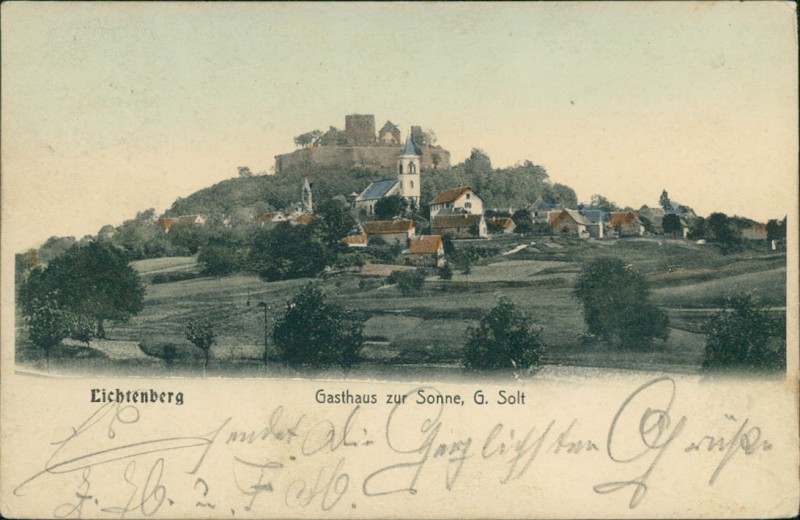 Lichtenberg
Gasthaus zur Sonne, G. Solt
Es sendet Die Herzlichsten Grüße
u.